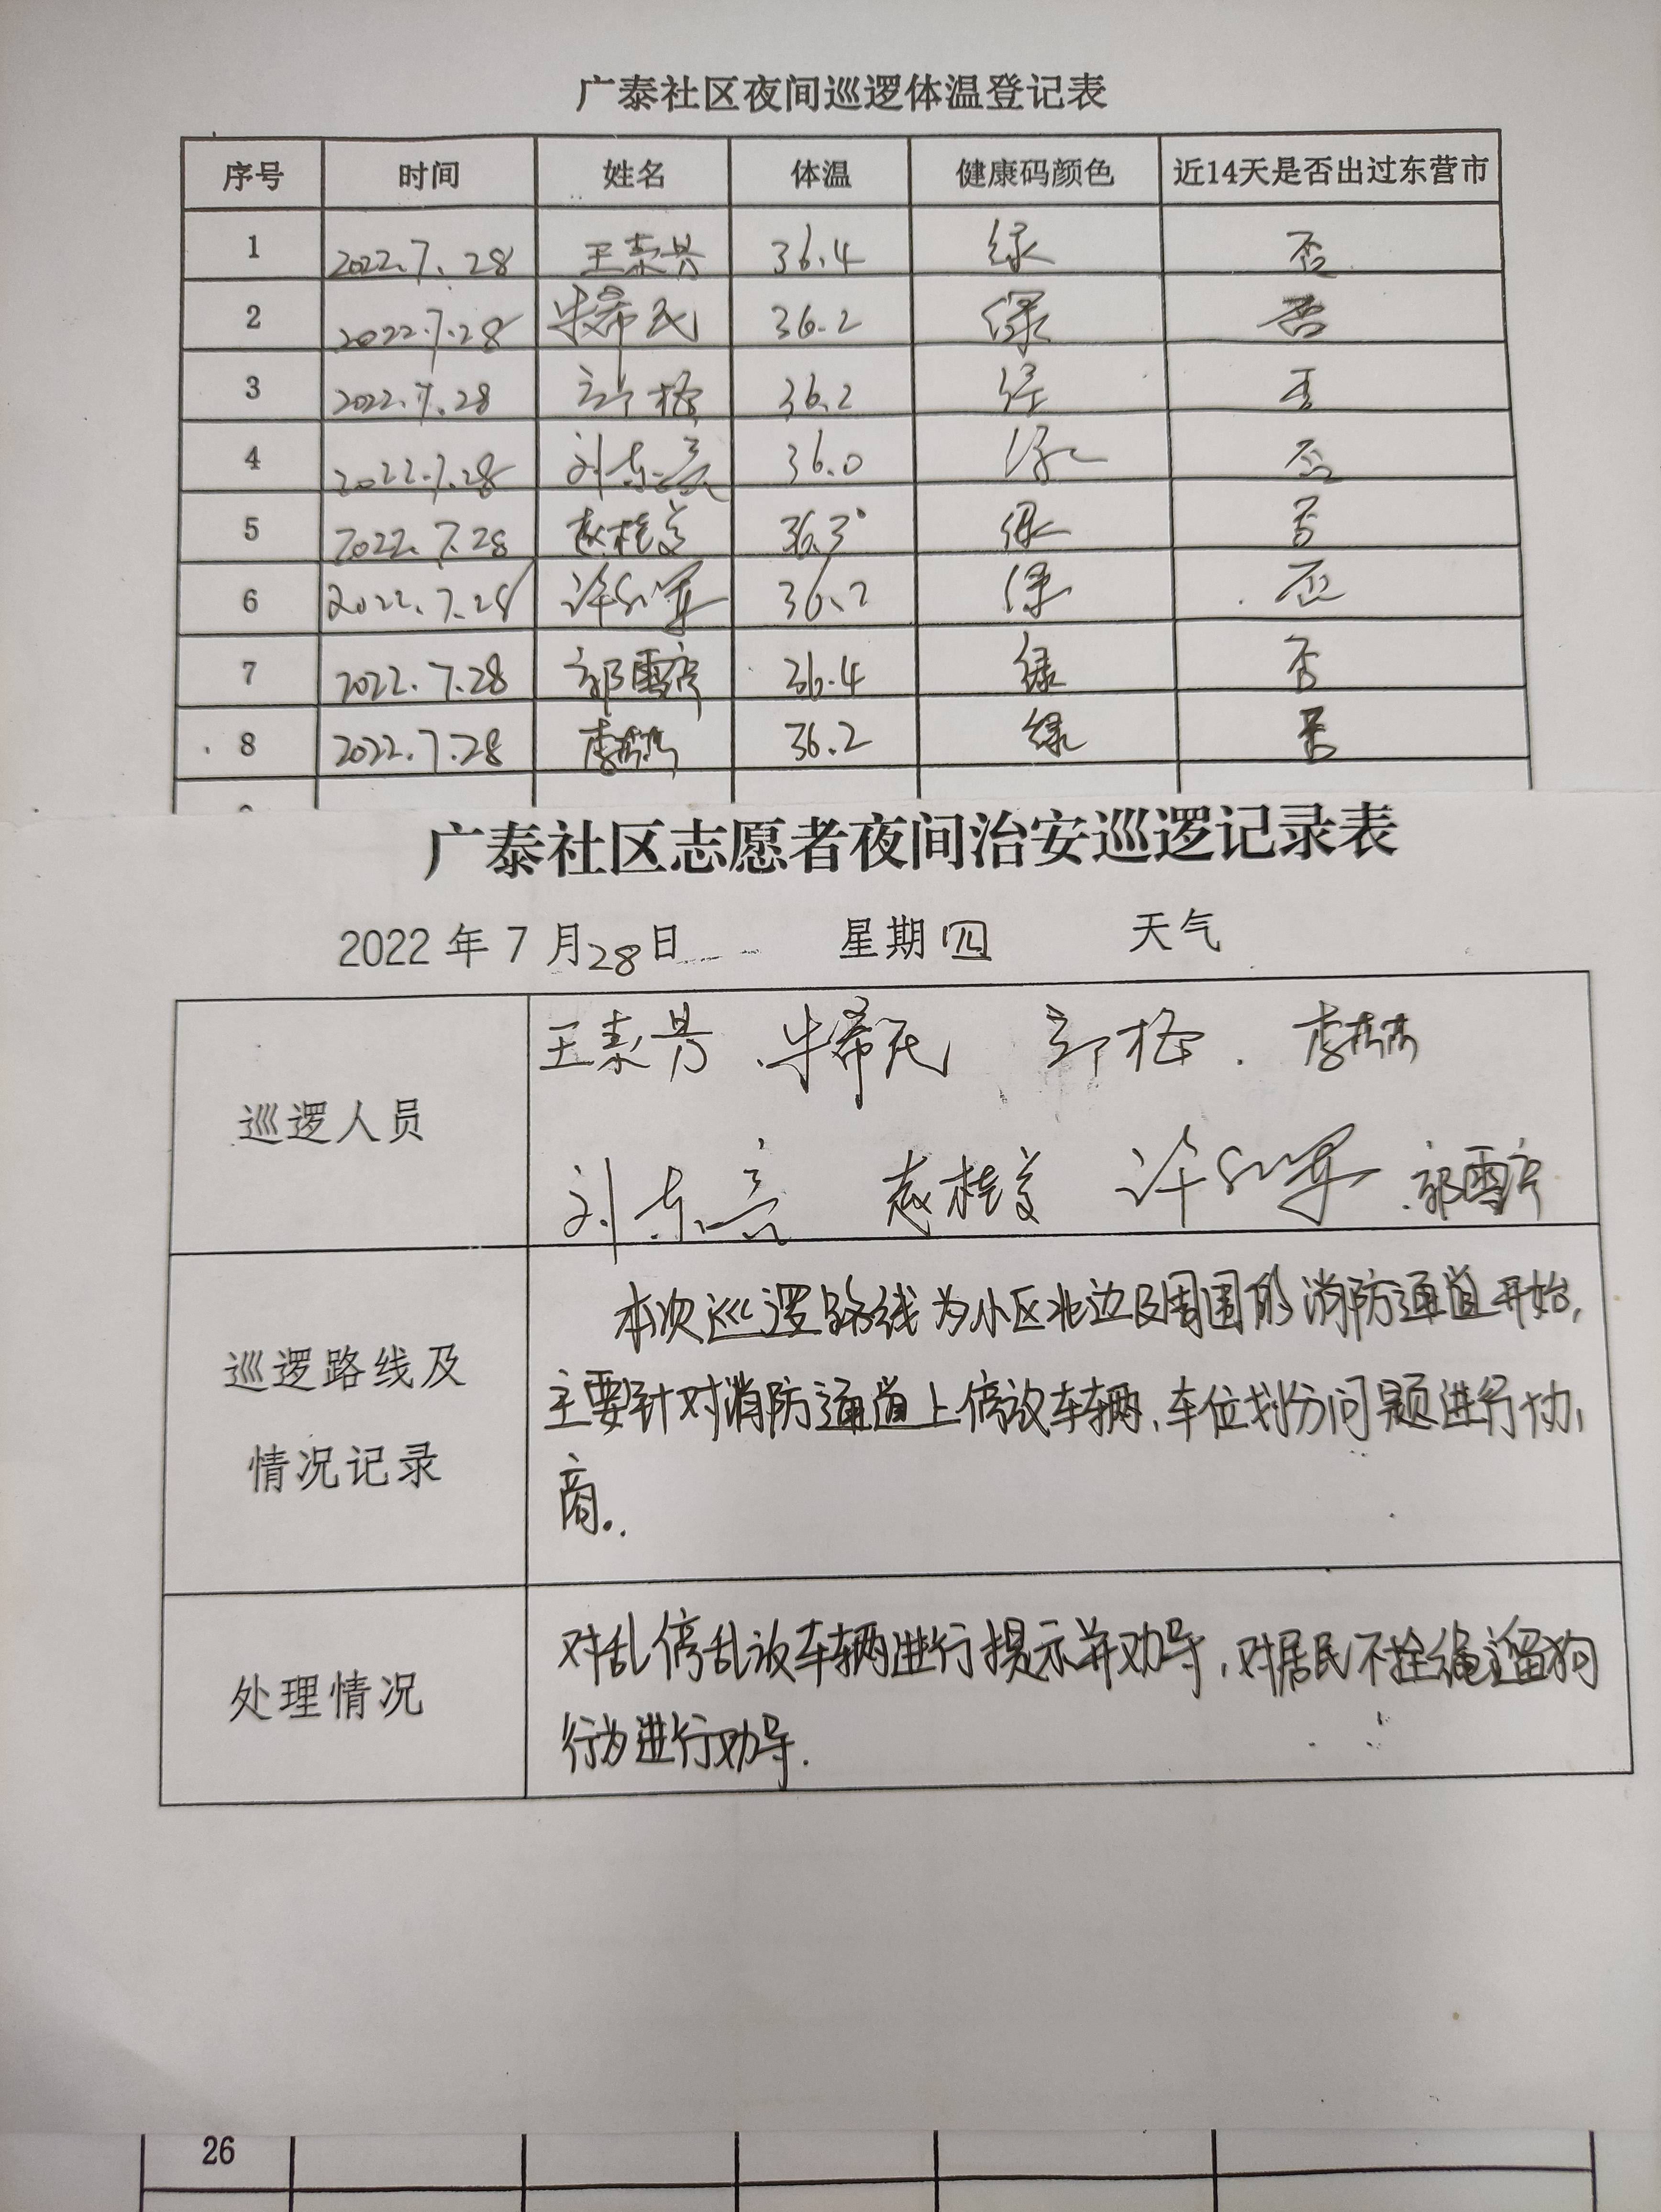 广泰社区夜间巡逻体温登记表
序号 时间 姓名 体温 健康码颜色 近14天是否出过东营市
1 2022.7.28 36.4 绿 否
2 2022.7.28 牛希民 36.2 绿 否
3 2022.7.28 36.2 绿 否
4 2022.7.28 刘东亮 36.0 绿 否
5 2022.7.28 赵桂芝 36.3° 绿 否
6 2022.7.28 36.2 绿 否
7 2022.7.28 36.4 绿 否
8 2022.7.28 36.2 绿 否
广泰社区志愿者夜间治安巡逻记录表
2022年7月28日 星期四 天气
巡逻人员
牛希民
刘东亮 赵桂芝
巡逻路线及
情况记录
本次巡逻路线为小区北边及周围的消防通道开始,
主要针对消防通道上停放车辆、车位划分问题进行协
商。
处理情况
对乱停乱放车辆进行提示并劝导,对居民不拴绳遛狗
行为进行劝导.
26